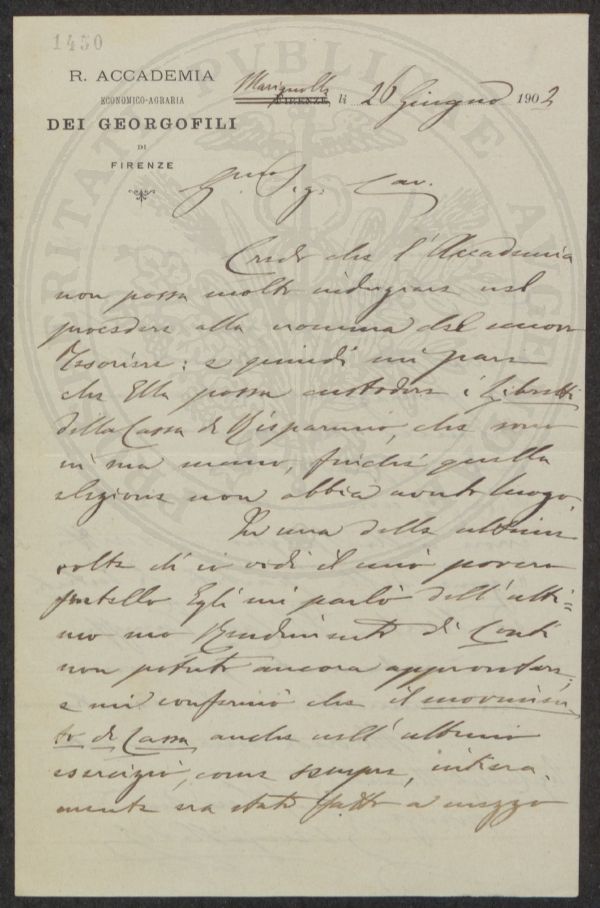 1450
R. ACCADEMIA
ECONOMICO-AGRARIA
DEI GEORGOFILI
DI
FIRENZE
Marignolle
FIRENZE, li 26 Giugno 1902
Sig. Cav.
Credo che l'Accademia
non possa molto indugiare nel
procedere alla nomina del nuovo
Tesoriere: e quindi mi pare
che Ella possa custodire i Libretti
della Cassa di Risparmio, che sono
in sua mano, finché quella
elezione non abbia avuto luogo.
In una delle ultime
volte che io vidi il mio povero
fratello Egli mi parlò dell'ulti=
mo suo Rendimento di Conti
non potuto ancora approntare;
e mi confermò che il movimen
to di Cassa anche nell'ultimo
esercizio, come sempre, intiera
mente era stato fatto a mezzo